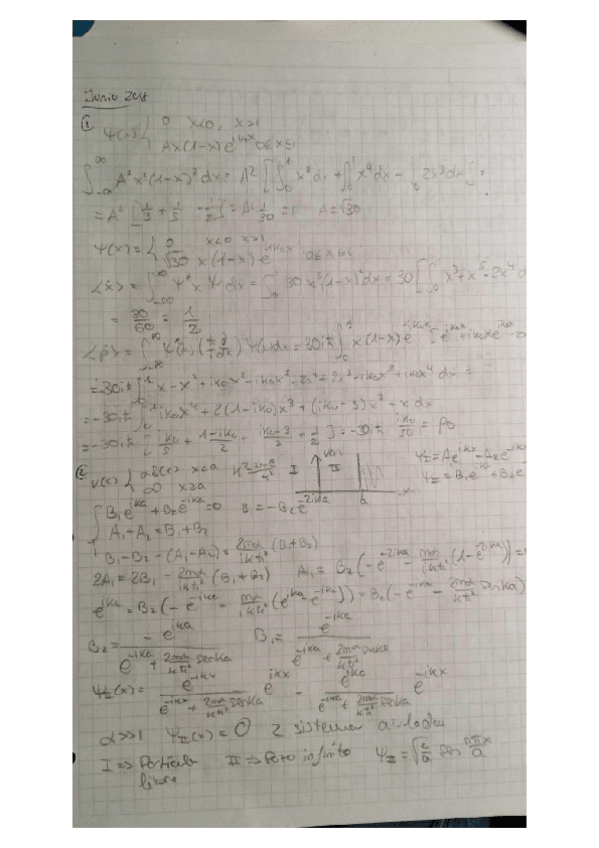 Junio 2018
① Ψ(x) { 0 x<0, x>1
Ax(1-x)e^{ik₀x} 0≤x≤1
∫_{-∞}^{∞} A²x²(1-x)² dx = A² [∫₀¹ x² dx + ∫₀¹ x⁴ dx - ∫₀ 2x³ dx] =
= A² [1/3 + 1/5 - 1/2] = A² 1/30 = 1 A = √30
Ψ(x) = { 0 x<0 x>1
√30 x(1-x) e^{ik₀x} 0≤x≤1
<x̂> = ∫_{-∞}^{∞} Ψ* x Ψ dx = ∫₀¹ 30 x³(1-x)² dx = 30 [∫₀¹ x³ + x⁵ - 2x⁴ d
= 30/60 = 1/2
<p̂> = ∫ Ψ*(x) Ψ(x) dx = 30iħ ∫₀¹ x(1-x) e^{-ik₀x} [e^{ik₀x} + ik₀x e^{ik₀x}
= -30iħ ∫₀¹ x - x² + ik₀x² - ik₀x³ - 2x² + 2x³ - ik₀x³ + ik₀x⁴ dx =
= -30iħ ∫₀¹ ik₀x⁴ + 2(1-ik₀)x³ + (ik₀-3)x² + x dx
= -30iħ [ik₀/5 + (1-ik₀)/2 + (ik₀-3)/3 + 1/2] = -30iħ ik₀/30 = p₀
② V(x) { αδ(x) x<a
∞ x≥a
I V(x) II a x
Ψ_I = A₁e^{ikx} + A₂e^{-ikx}
Ψ_II = B₁e^{ikx} + B₂e
{ B₁e^{ika} + B₂e^{-ika} = 0 B₁ = -B₂e^{-2ika}
A₁ + A₂ = B₁ + B₂
B₁ - B₂ - (A₁ - A₂) = 2mα/ikħ² (B₁+B₂)
2A₁ = 2B₁ - 2mα/ikħ² (B₁+B₂) A₁ = B₂(-e^{-2ika} - mα/ikħ² (1-e^{-2ika})) =
e^{ika} = B₂(-e^{-ika} - mα/ikħ² (e^{ika} - e^{-ika})) = B₂(-e^{-ika} - 2mα/kħ² senka)
B₂ = -e^{ika} / (e^{-ika} + 2mα/kħ² senka) B₁ = e^{-ika} / (e^{-ika} + 2mα/kħ² senka)
Ψ_II(x) = e^{-ika} / (e^{-ika} + 2mα/kħ² senka) e^{ikx} - e^{ika} / (e^{-ika} + 2mα/kħ² senka) e^{-ikx}
α>>1 Ψ_II(x) = 0 2 sistemas aislados
I => Partícula II => Pozo infinito Ψ_II = √(2/a) sen nπx/a
libre